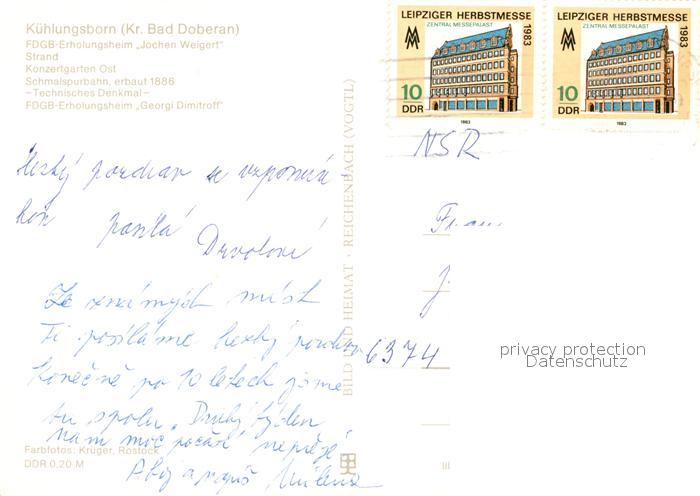 Kühlungsborn (Kr. Bad Doberan)
FDGB-Erholungsheim „Jochen Weigert"
Strand
Konzertgarten Ost
Schmalspurbahn, erbaut 1886
—Technisches Denkmal—
FDGB-Erholungsheim „Georgi Dimitroff"
LEIPZIGER HERBSTMESSE 1983
ZENTRAL-MESSEPALAST
10
DDR
1983
LEIPZIGER HERBSTMESSE 1983
ZENTRAL-MESSEPALAST
10
DDR
1983
NSR
Hezký pozdrav a vzpomín
kou posílá
Drvolovi
Ze známých míst
Ti posíláme hezký pozdrav
Konečně po 10 letech jsme
tu spolu. Druhý týden
nám moc počasí nepřeje
Milena
BILD UND HEIMAT · REICHENBACH (VOGTL)
Frau
J.
6374
privacy protection
Datenschutz
Farbfotos: Krüger, Rostock
DDR 0,20 M
III